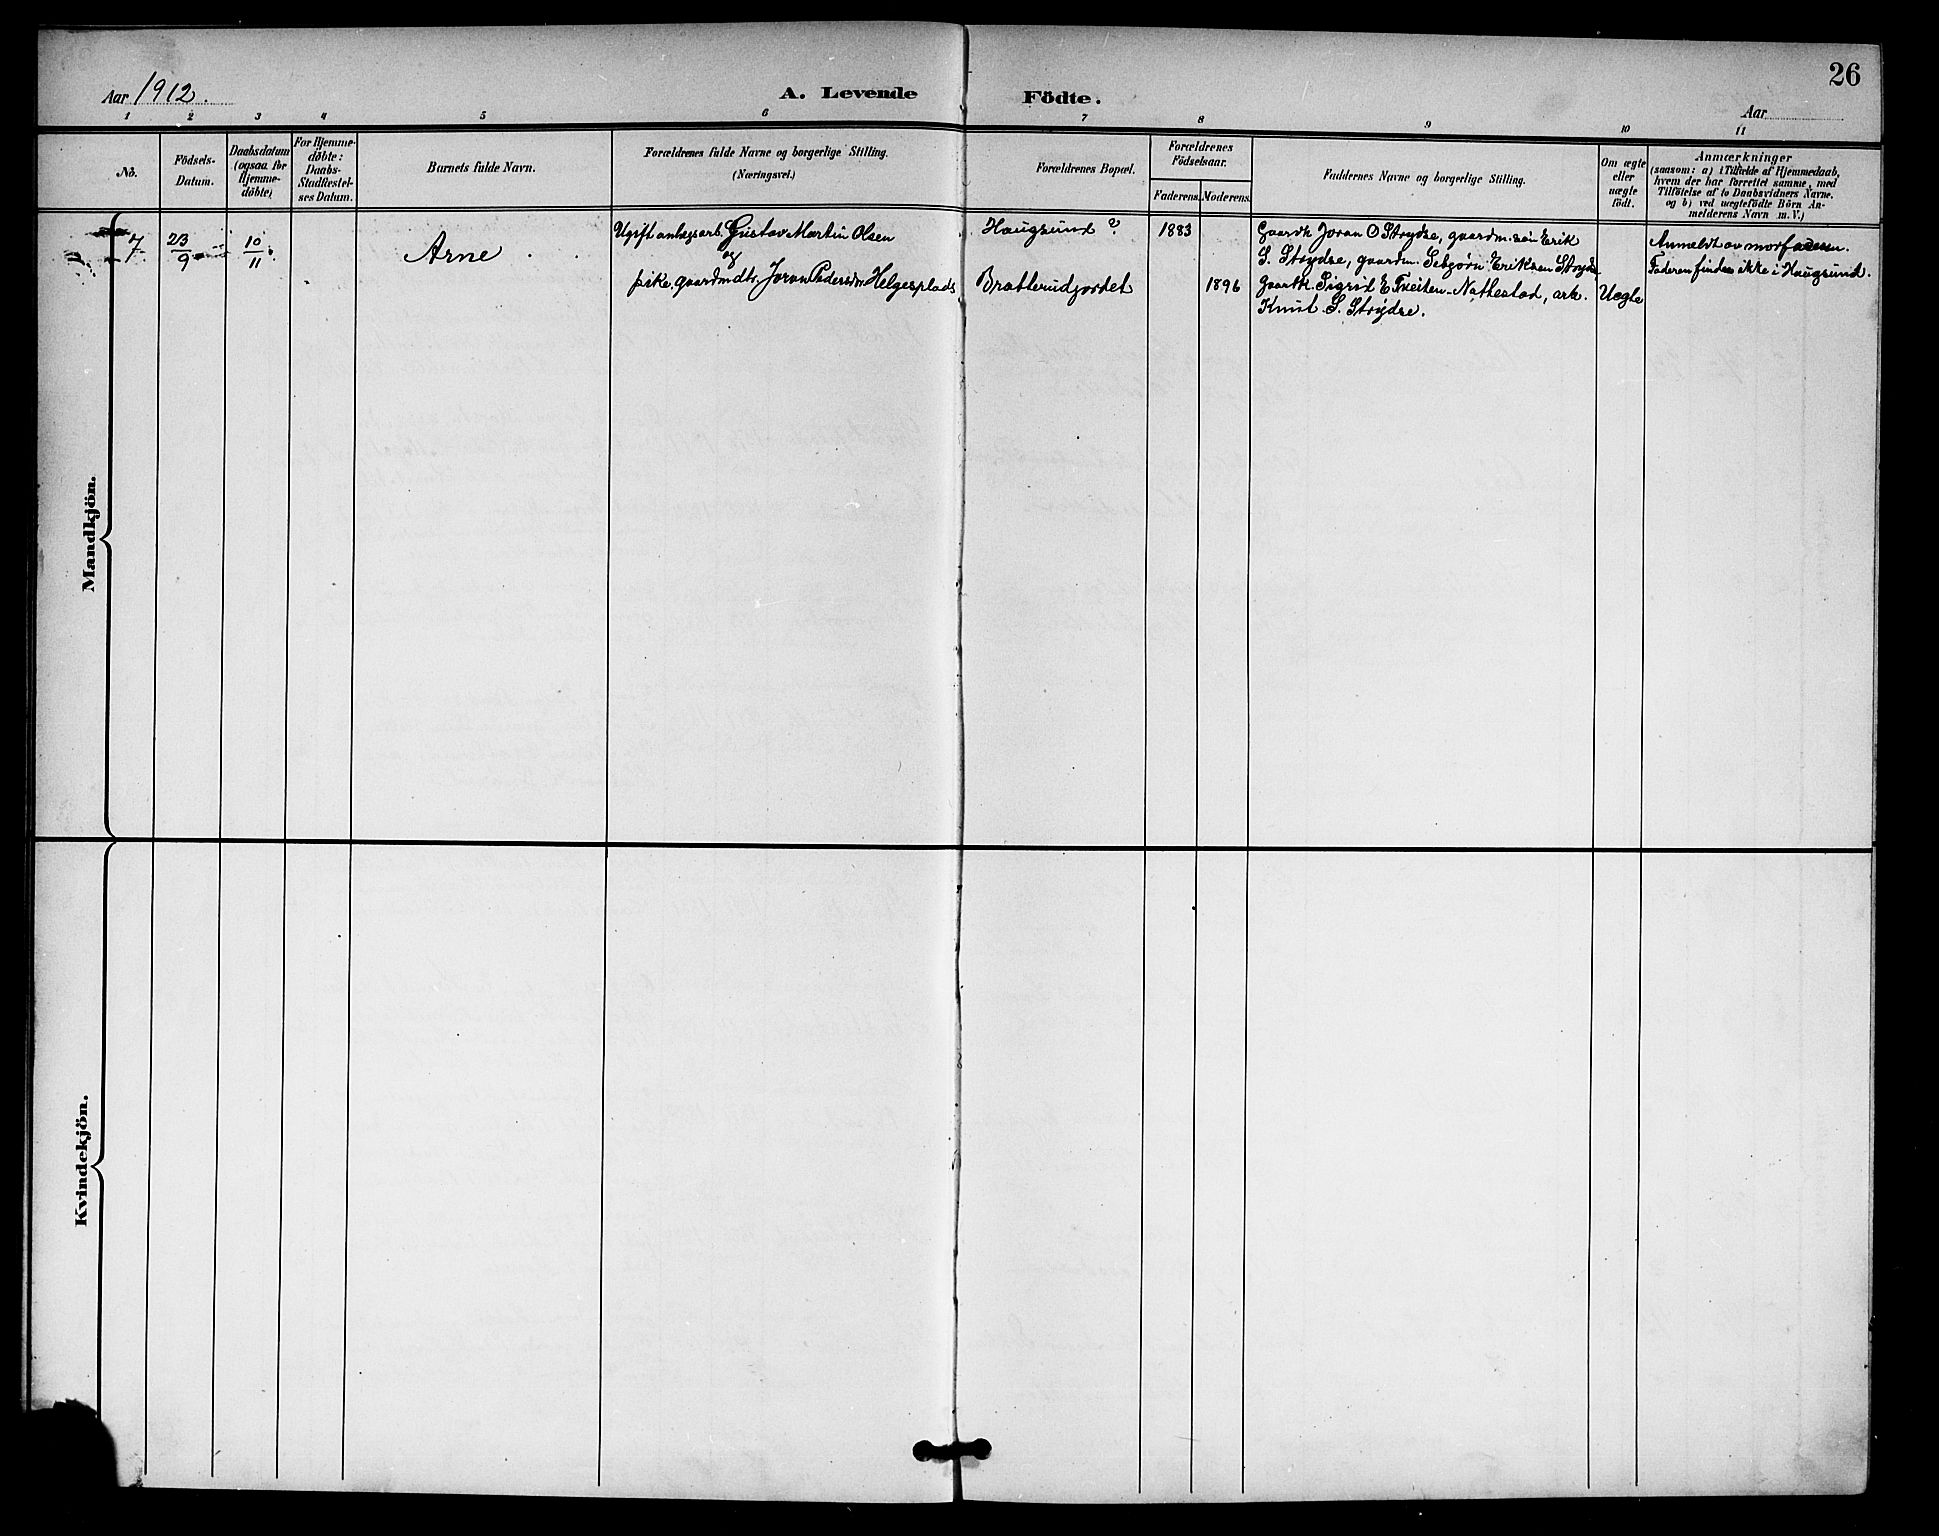 26
Aar 1912.
A. Levende Födte.
Aar
1 2 3 4 5 6 7 8 9 10 11
No.
Födsels-
Datum.
Daabsdatum
(ogsaa for
Hjemme-
døbte)
For Hjemme-
døbte:
Daabs-
Stadfæstel-
ses Datum.
Barnets fulde Navn.
Forældrenes fulde Navne og borgerlige Stilling.
(Næringsvei.)
Forældrenes Bopæl.
Forældrenes
Födselsaar.
Faderens. Moderens.
Faddernes Navne og borgerlige Stilling.
Om ægte
eller
uægte
födt.
Anmærkninger
(saasom: a) i Tilfælde af Hjemmedaab,
hvem der har forrettet samme, med
Tilföielse af to Daabsvidners Navne,
og b) ved uægtefödte Börn An-
melderens Navn m. V.)
Mandkjön.
7
23/9
10/11
Arne
Ugift anlægsarb. Gustav Martin Olsen
og
pike, gaardmdtr. Joran Pedersdtr Helgesplads
Haugsund ?
Bratterudjordet
1883
1896
Gaardk Joran O Strydse, gaardm. søn Erik
S. Strydse, gaardm. Sebjørn Eriksen Strydse
gaardk. Sigrid E Tveiten-Nattestad, arb.
Knut S. Strydse.
Uegte
Anmeldt av morfaderen.
Faderen findes ikke i Haugsund.
Kvindekjön.